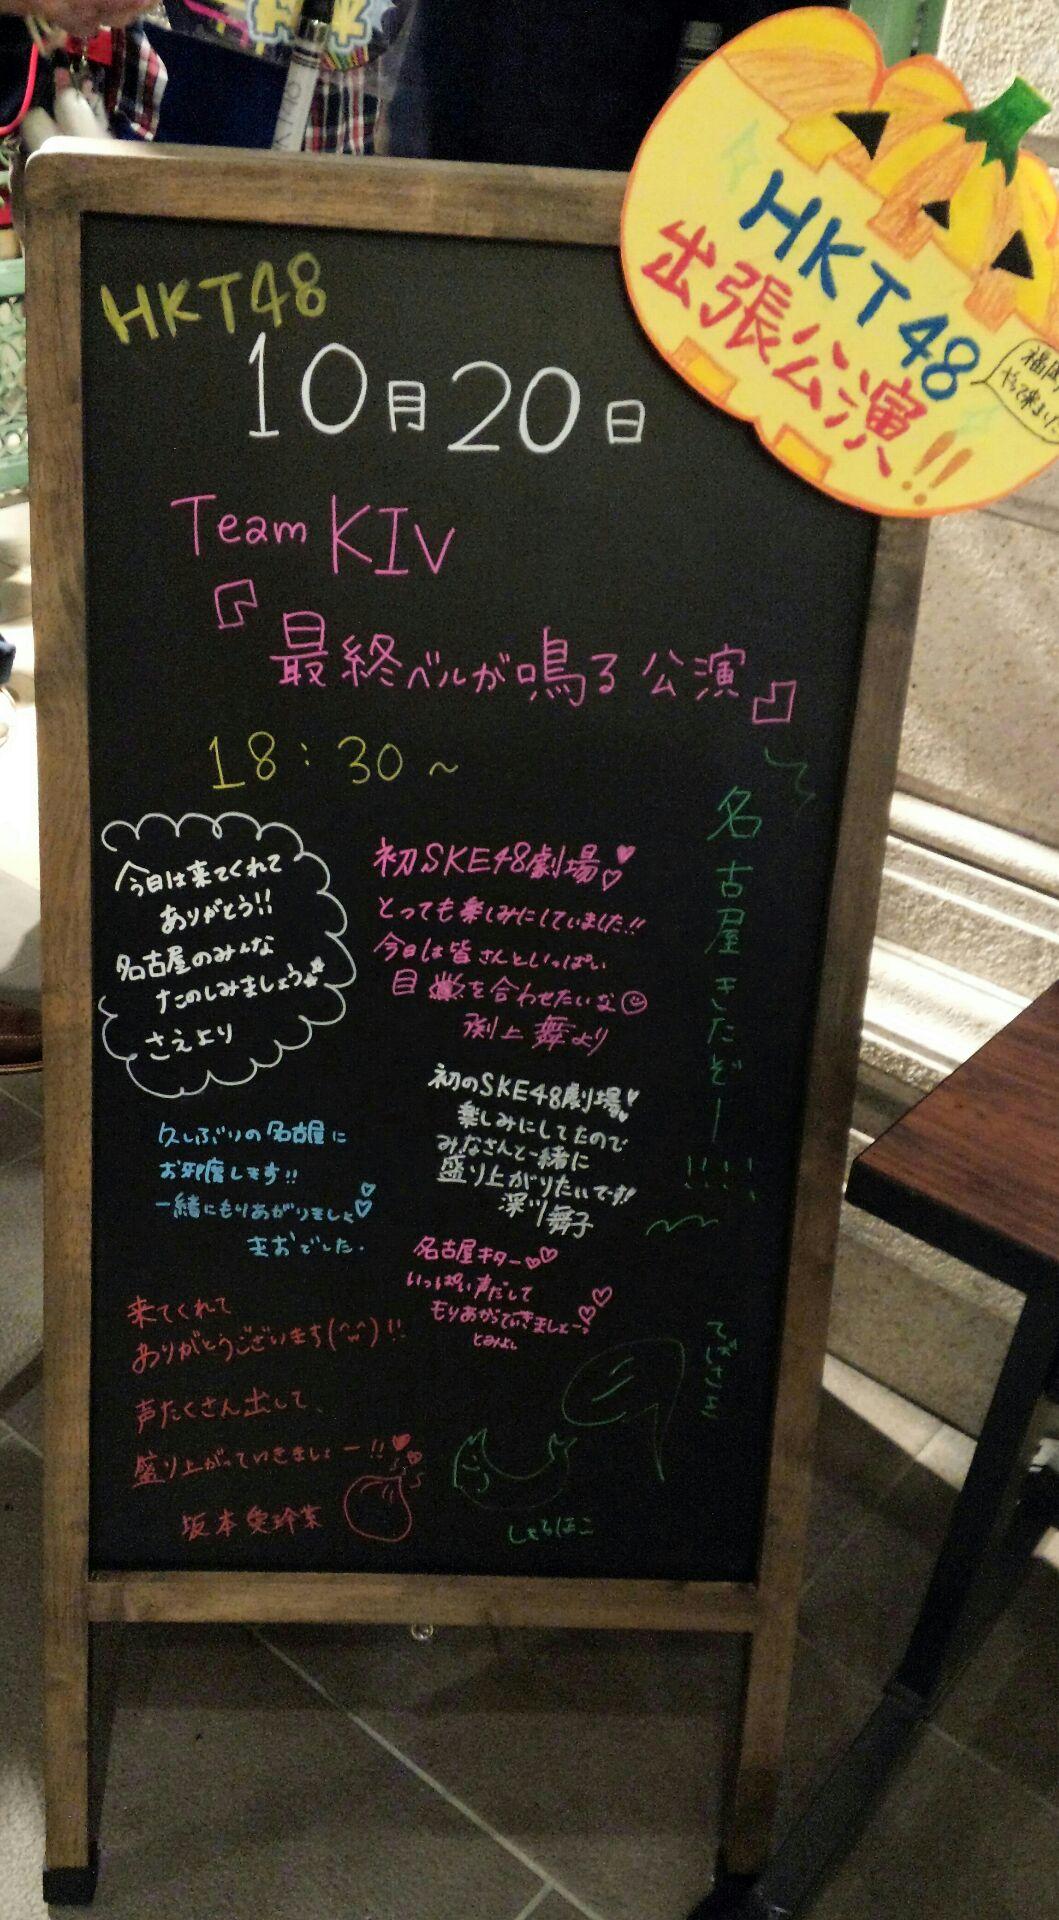 HKT48
出張公演!!
やって来ました
HKT48
10月20日
Team KIV
『最終ベルが鳴る公演』
18:30～
今日は来てくれて
ありがとう!!
名古屋のみんな
たのしみましょう
さえより
初SKE48劇場♥♡
とっても楽しみにしていました!!
今日は皆さんといっぱい
目を合わせたいな☺
渕上舞より
初のSKE48劇場
楽しみにしてたので
みなさんと一緒に
盛り上がりたいです!
深川舞子
久しぶりの名古屋に
お邪魔します!!
一緒にもりあがりましょ♡
まおでした.
名古屋キター♡♡
いっぱい声だして
もりあがっていきましょーっ♡♡
とみよし
来てくれて
ありがとうございます(^^)!!
声たくさん出して、
盛り上がっていきましょー!!
坂本愛玲菜
名古屋きたぞー!!!!!
てばさき
しゃちほこ